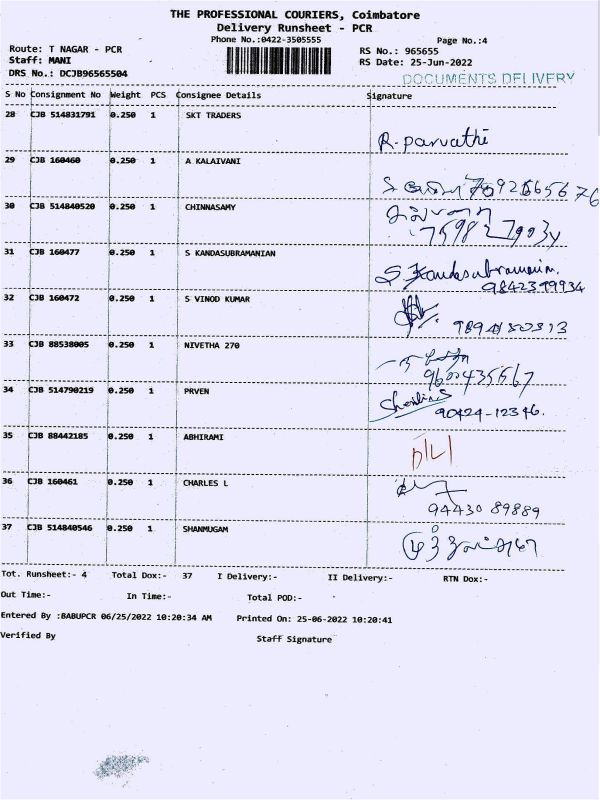 THE PROFESSIONAL COURIERS, Coimbatore
Delivery Runsheet - PCR
Phone No.:0422-3505555
Page No.:4
Route: T NAGAR - PCR
RS No.: 965655
Staff: MANI
RS Date: 25-Jun-2022
DRS No.: DCJB96565504
DOCUMENTS DELIVERY
S No Consignment No Weight PCS Consignee Details Signature
28 CJB 514831791 0.250 1 SKT TRADERS
R. parvathi
29 CJB 160460 0.250 1 A KALAIVANI
30 CJB 514840520 0.250 1 CHINNASAMY
31 CJB 160477 0.250 1 S KANDASUBRAMANIAN
S. Kandasubramanian.
9842399934
32 CJB 160472 0.250 1 S VINOD KUMAR
33 CJB 88538005 0.250 1 NIVETHA 270
34 CJB 514790219 0.250 1 PRVEN
90424-12346.
35 CJB 88442185 0.250 1 ABHIRAMI
36 CJB 160461 0.250 1 CHARLES L
94430 89889
37 CJB 514840546 0.250 1 SHANMUGAM
Tot. Runsheet:- 4 Total Dox:- 37 I Delivery:- II Delivery:- RTN Dox:-
Out Time:- In Time:- Total POD:-
Entered By :BABUPCR 06/25/2022 10:20:34 AM Printed On: 25-06-2022 10:20:41
Verified By Staff Signature